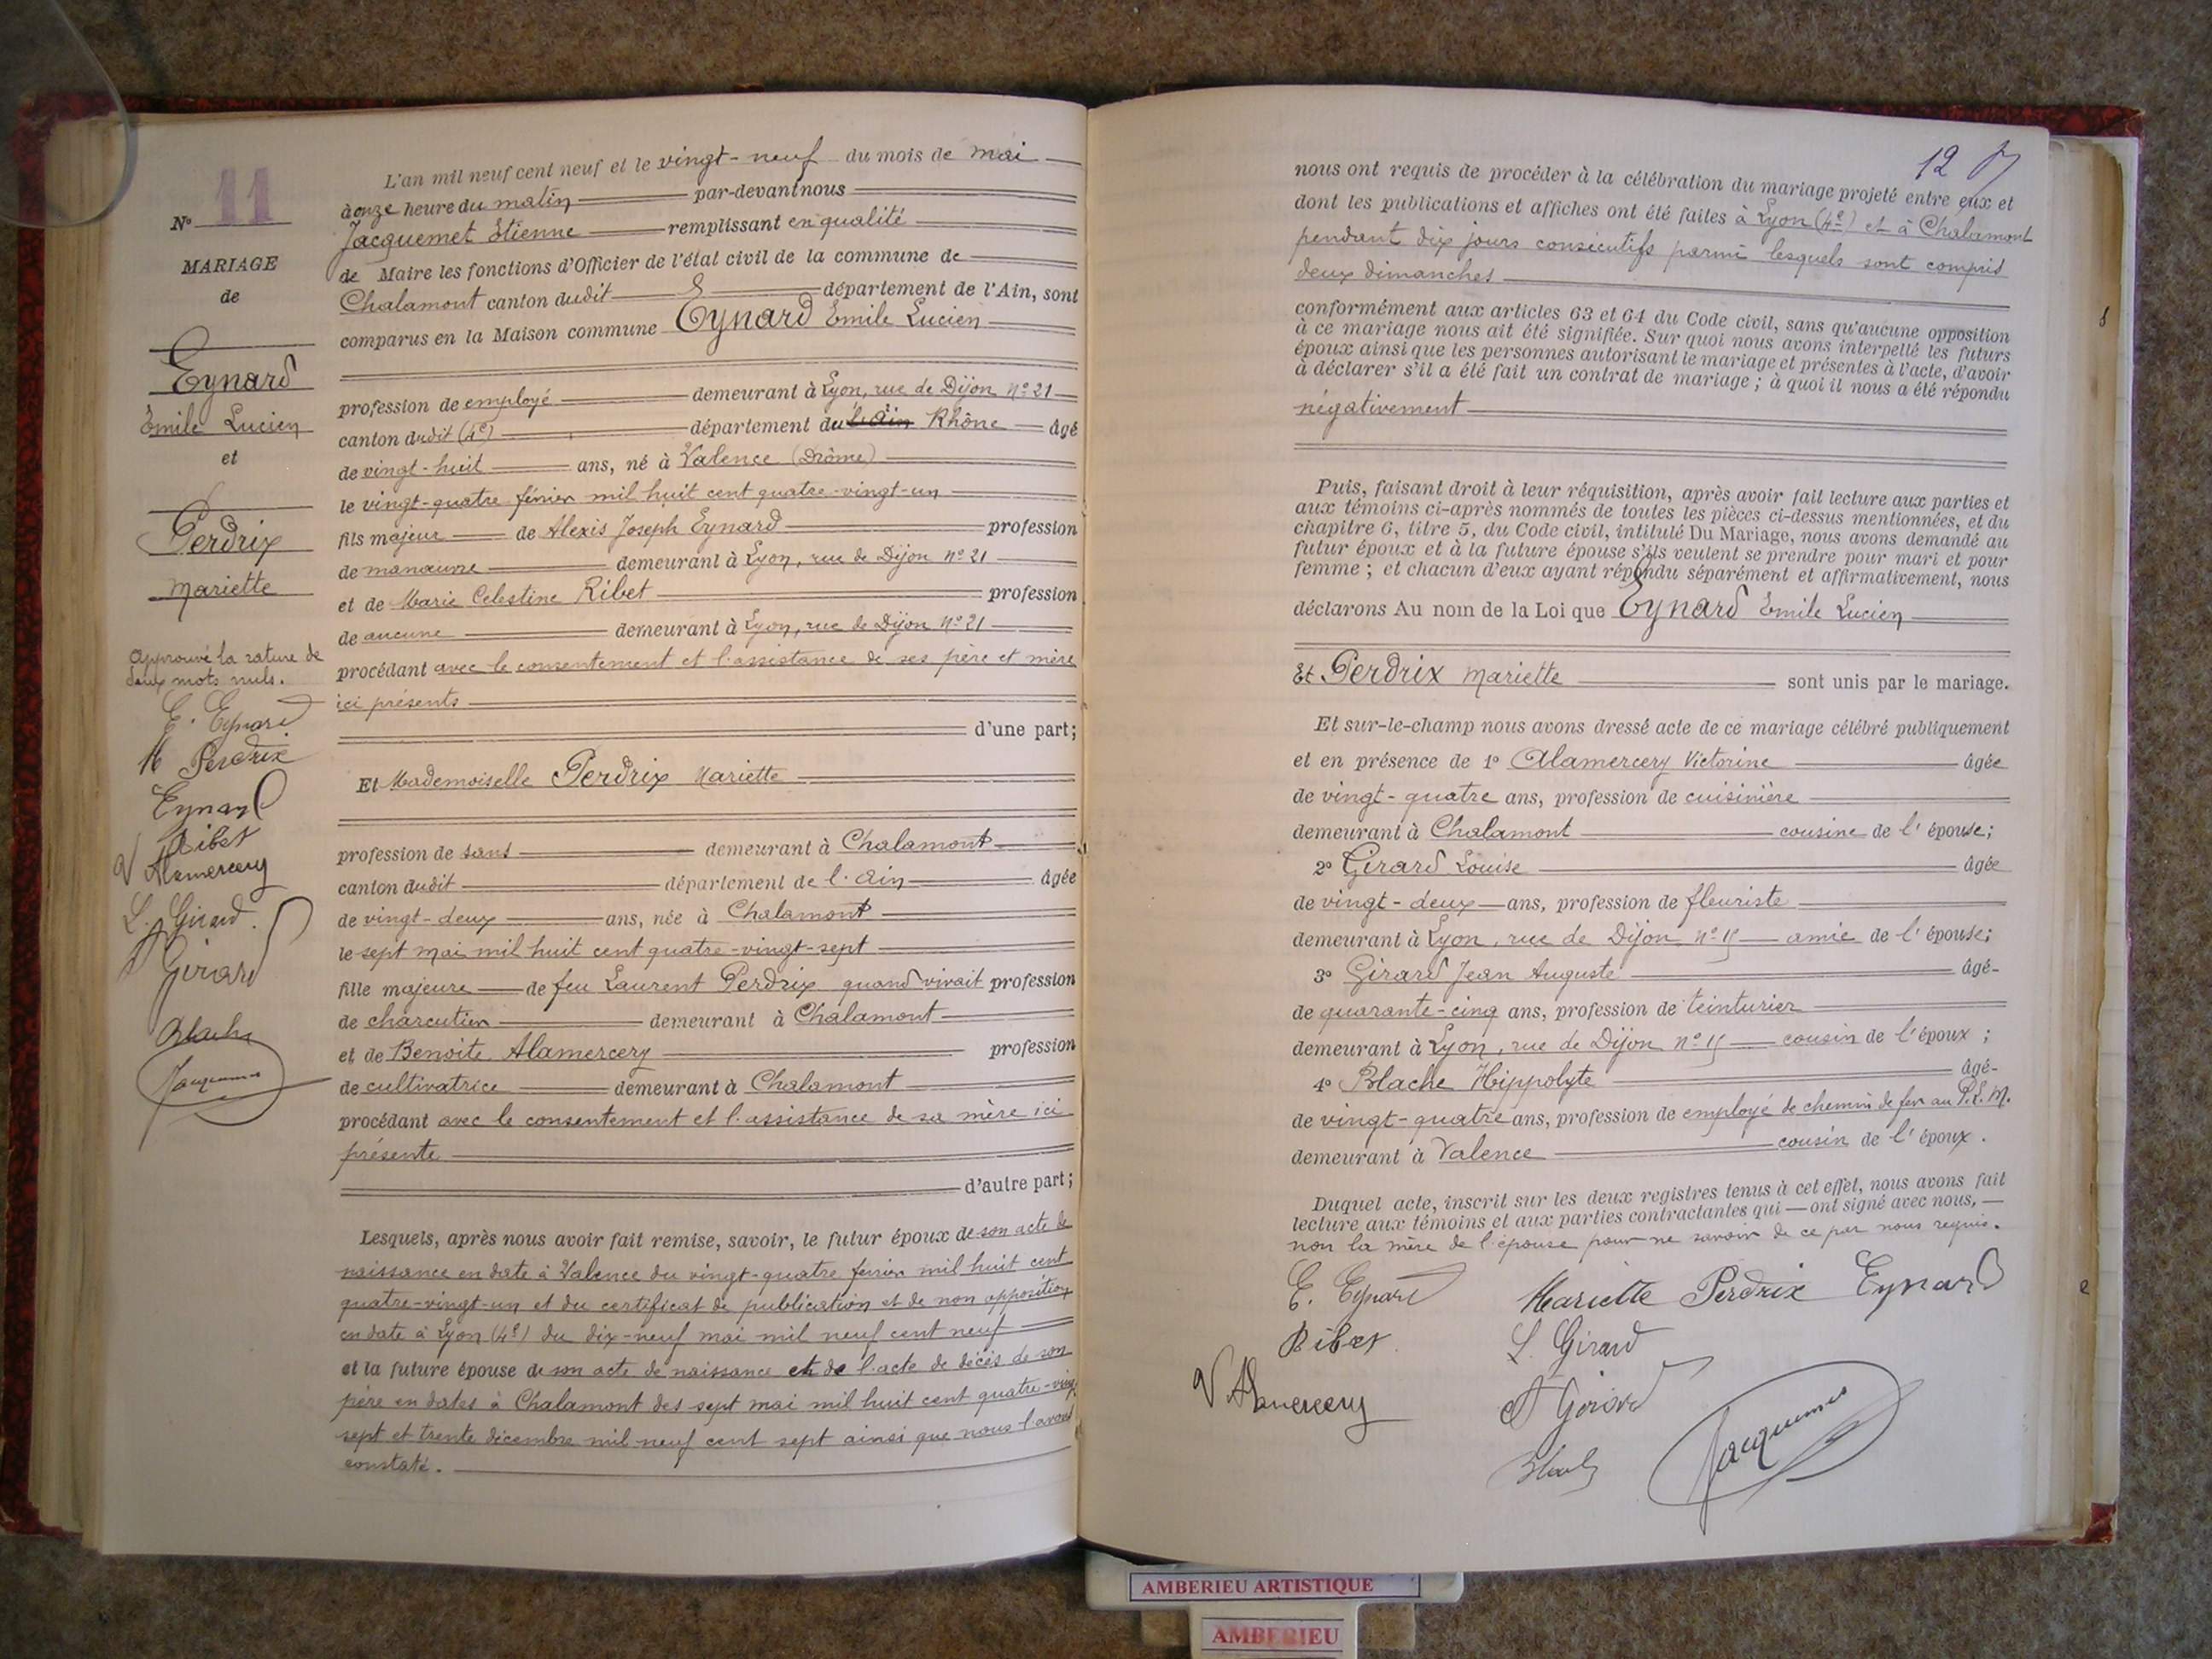 N° 11
MARIAGE
de
Eynard
Emile Lucien
et
Perdrix
Mariette
approuvé la rature de
deux mots nuls.
E. Eynard
M Perdrix
Eynard
Ribet
V Alamercery
L. Girard.
A Girard
Blache
Jacquemet
L'an mil neuf cent neuf et le vingt-neuf du mois de mai
à onze heure du matin par-devant nous
Jacquemet Etienne remplissant en qualité
de Maire les fonctions d'Officier de l'état civil de la commune de
Chalamont canton dudit département de l'Ain, sont
comparus en la Maison commune Eynard Emile Lucien
profession de employé demeurant à Lyon, rue de Dijon n° 21
canton dudit (4e) département du l'ain Rhône âgé
de vingt-huit ans, né à Valence (Drôme)
le vingt-quatre février mil huit cent quatre-vingt-un
fils majeur de Alexis Joseph Eynard profession
de manœuvre demeurant à Lyon, rue de Dijon n° 21
et de Marie Celestine Ribet profession
de aucune demeurant à Lyon, rue de Dijon n° 21
procédant avec le consentement et l'assistance de ses père et mère
ici présents
d'une part;
Et Mademoiselle Perdrix Mariette
profession de sans demeurant à Chalamont
canton dudit département de l'ain âgée
de vingt-deux ans, née à Chalamont
le sept mai mil huit cent quatre-vingt-sept
fille majeure de feu Laurent Perdrix quand vivait profession
de charcutier demeurant à Chalamont
et de Benoite Alamercery profession
de cultivatrice demeurant à Chalamont
procédant avec le consentement et l'assistance de sa mère ici
présente
d'autre part;
Lesquels, après nous avoir fait remise, savoir, le futur époux de son acte de
naissance en date à Valence du vingt-quatre février mil huit cent
quatre-vingt-un et du certificat de publication et de non opposition
en date à Lyon (4e) du dix-neuf mai mil neuf cent neuf
et la future épouse de son acte de naissance et de l'acte de décès de son
père en dates à Chalamont des sept mai mil huit cent quatre-vingt
sept et trente décembre mil neuf cent sept ainsi que nous l'avons
constaté.
12
nous ont requis de procéder à la célébration du mariage projeté entre eux et
dont les publications et affiches ont été faites à Lyon (4e) et à Chalamont
pendant dix jours consécutifs parmi lesquels sont compris
deux dimanches
conformément aux articles 63 et 64 du Code civil, sans qu'aucune opposition
à ce mariage nous ait été signifiée. Sur quoi nous avons interpellé les futurs
époux ainsi que les personnes autorisant le mariage et présentes à l'acte, d'avoir
à déclarer s'il a été fait un contrat de mariage ; à quoi il nous a été répondu
négativement
Puis, faisant droit à leur réquisition, après avoir fait lecture aux parties et
aux témoins ci-après nommés de toutes les pièces ci-dessus mentionnées, et du
chapitre 6, titre 5, du Code civil, intitulé Du Mariage, nous avons demandé au
futur époux et à la future épouse s'ils veulent se prendre pour mari et pour
femme ; et chacun d'eux ayant répondu séparément et affirmativement, nous
déclarons Au nom de la Loi que Eynard Emile Lucien
Et Perdrix Mariette sont unis par le mariage.
Et sur-le-champ nous avons dressé acte de ce mariage célébré publiquement
et en présence de 1° Alamercery Victorine âgée
de vingt-quatre ans, profession de cuisinière
demeurant à Chalamont cousine de l'épouse;
2° Girard Louise âgée
de vingt-deux ans, profession de fleuriste
demeurant à Lyon, rue de Dijon n° 15 amie de l'épouse;
3° Girard Jean Auguste âgé
de quarante-cinq ans, profession de teinturier
demeurant à Lyon, rue de Dijon n° 15 cousin de l'époux ;
4° Blache Hippolyte âgé
de vingt-quatre ans, profession de employé de chemin de fer au P.L.M.
demeurant à Valence cousin de l'époux.
Duquel acte, inscrit sur les deux registres tenus à cet effet, nous avons fait
lecture aux témoins et aux parties contractantes qui ont signé avec nous,
non la mère de l'épouse pour ne savoir de ce par nous requis.
E. Eynard Mariette Perdrix Eynard
Ribet L. Girard
V Alamercery A Girard
Blache Jacquemet
AMBERIEU ARTISTIQUE
AMBERIEU